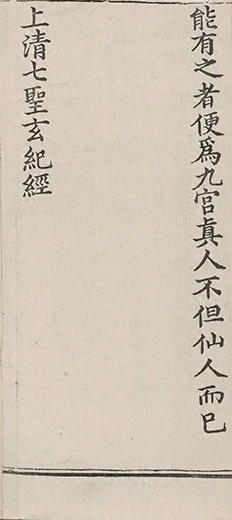 能有之者便爲九宫真人不但仙人而已
上清七聖玄紀經